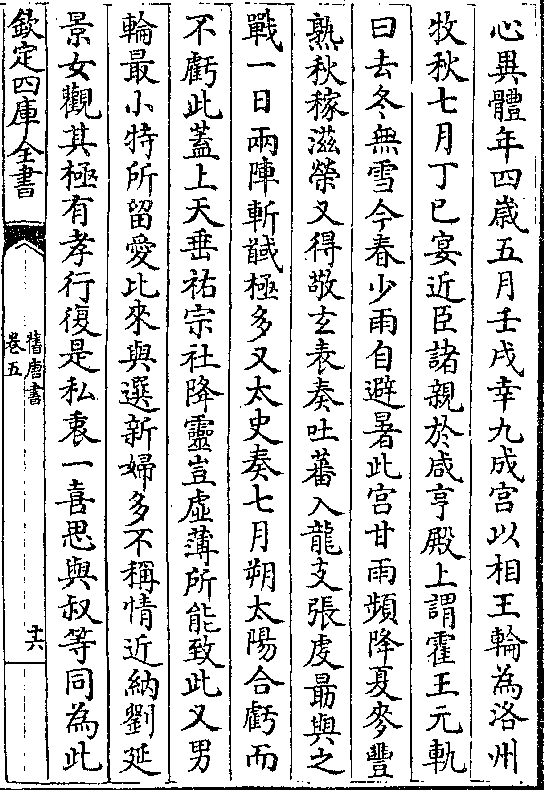 心異體年四歲五月壬戌幸九成宮以相王輪為洛州
牧秋七月丁巳宴近臣諸親於咸亨殿上謂霍王元軌
曰去冬無雪今春少雨自避暑此宮甘雨頻降夏麥豐
熟秋稼滋榮又得敬玄表奏吐蕃入龍支張虔朂與之
戰一日兩陣斬馘極多又太史奏七月朔太陽合虧而
不虧此蓋上天垂祐宗社降靈豈虛薄所能致此又男
輪最小特所留愛比來與選新婦多不稱情近納劉延
景女觀其極有孝行復是私衷一喜思與叔等同為此
欽定四庫全書
舊唐書
卷五
十六